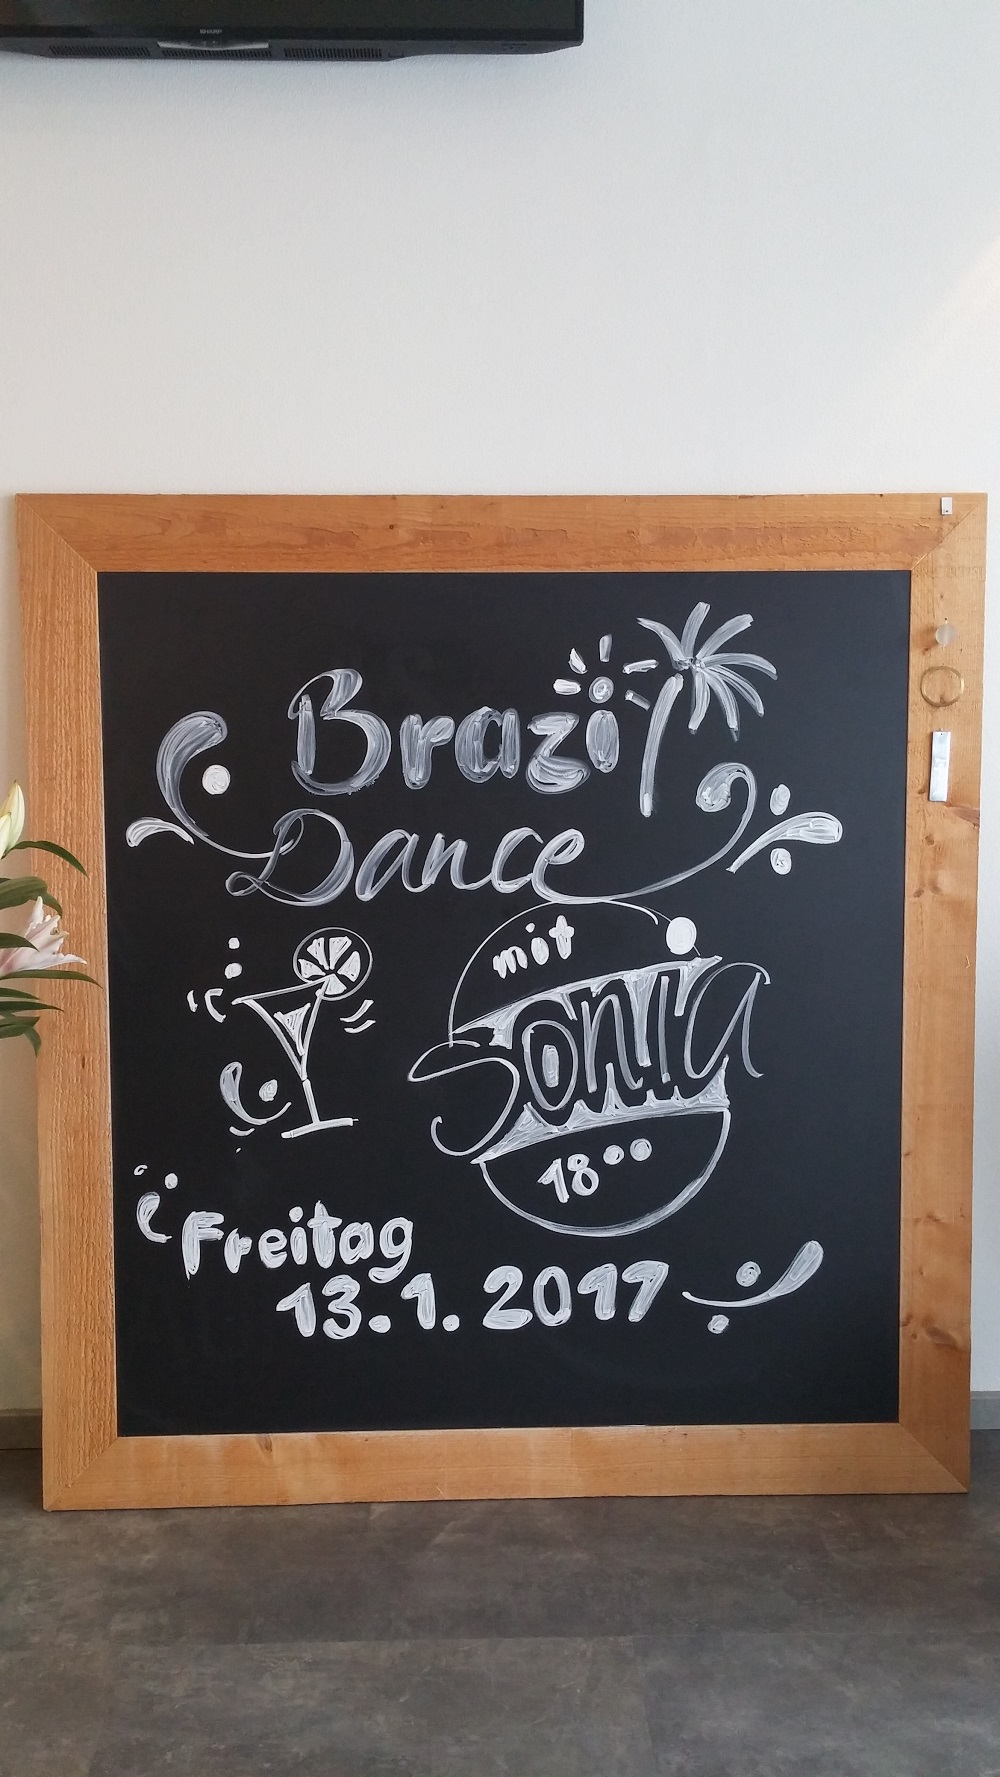 SHARP
Brazil
Dance
mit
Sonia
18⁰⁰
Freitag
13.1.2017